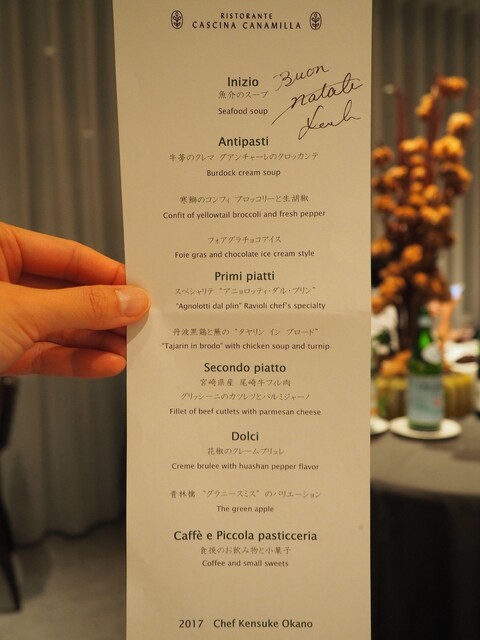 RISTORANTE
CASCINA CANAMILLA
Buon
natale
Inizio
魚介のスープ
Seafood soup
Antipasti
牛蒡のクレマ グアンチャーレのクロッカンテ
Burdock cream soup
寒鰤のコンフィ ブロッコリーと生胡椒
Confit of yellowtail broccoli and fresh pepper
フォアグラチョコアイス
Foie gras and chocolate ice cream style
Primi piatti
スペシャリテ "アニョロッティ・ダル・プリン"
"Agnolotti dal plin" Ravioli chef's specialty
丹波黒鶏と蕪の "タヤリン イン ブロード"
"Tajarin in brodo" with chicken soup and turnip
Secondo piatto
宮崎県産 尾崎牛フィレ肉
グリッシーニのカツレツとパルミジャーノ
Fillet of beef cutlets with parmesan cheese
Dolci
花椒のクレームブリュレ
Creme brulee with huashan pepper flavor
青林檎 "グラニースミス" のバリエーション
The green apple
Caffè e Piccola pasticceria
食後のお飲み物と小菓子
Coffee and small sweets
2017 Chef Kensuke Okano